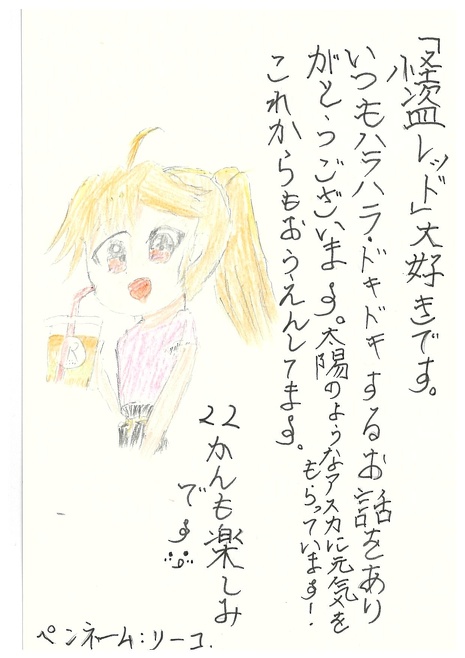 「怪盗レッド」大好きです。
いつもハラハラ・ドキドキするお話をあり
がとうございます。太陽のようなアスカに元気を
もらっています!
これからもおうえんしてます。
22かんも楽しみ
です
ペンネーム:リーコ.
R